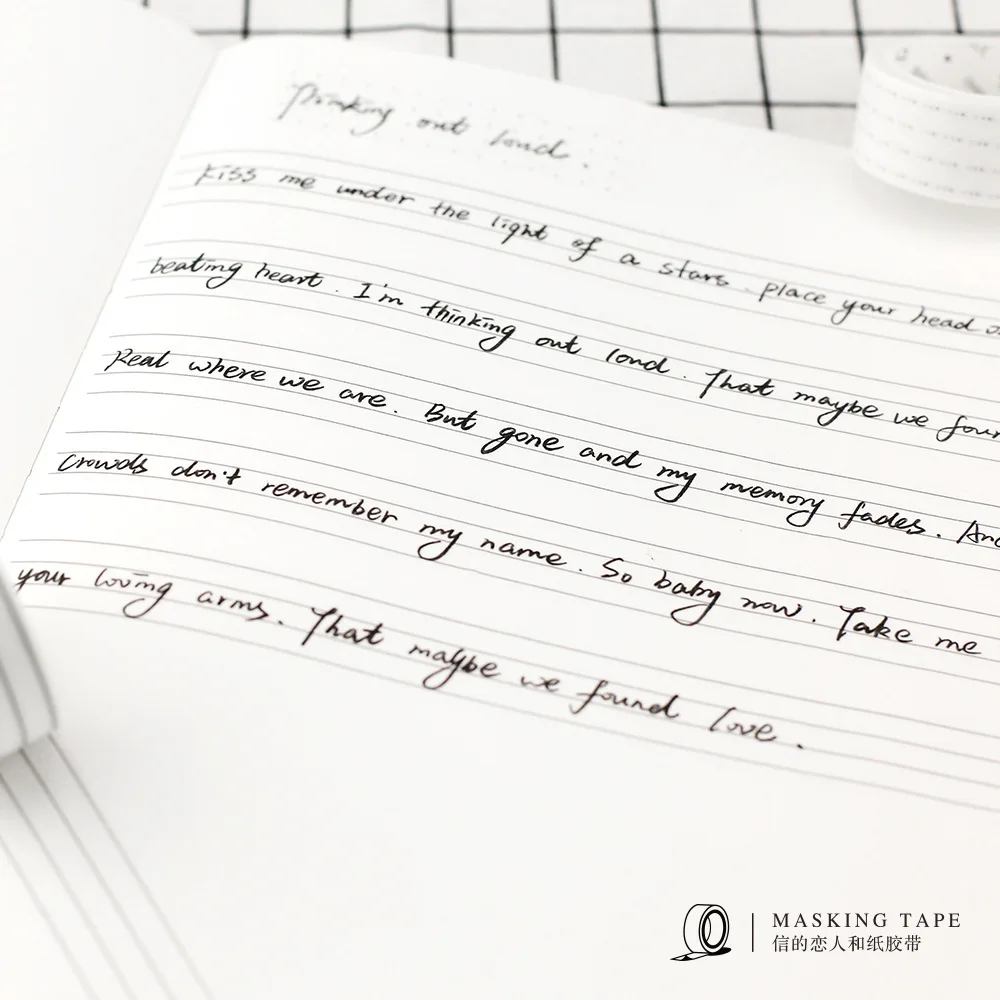 Thinking out loud.
Kiss me under the light of a stars. place your head
beating heart. I'm thinking out loud. That maybe we
Real where we are. But gone and my memory fades. And
Crowds don't remember my name. So baby now. Take me
your loving arms. That maybe we found love.
MASKING TAPE
信的恋人和纸胶带